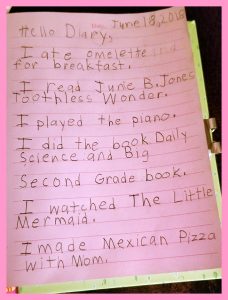 June 18, 2016
Hello Diary,
I ate omelette
for breakfast.
I read June B. Jones
Toothless Wonder.
I played the piano.
I did the book Daily
Science and Big
Second Grade book.
I watched The Little
Mermaid.
I made Mexican Pizza
with Mom.